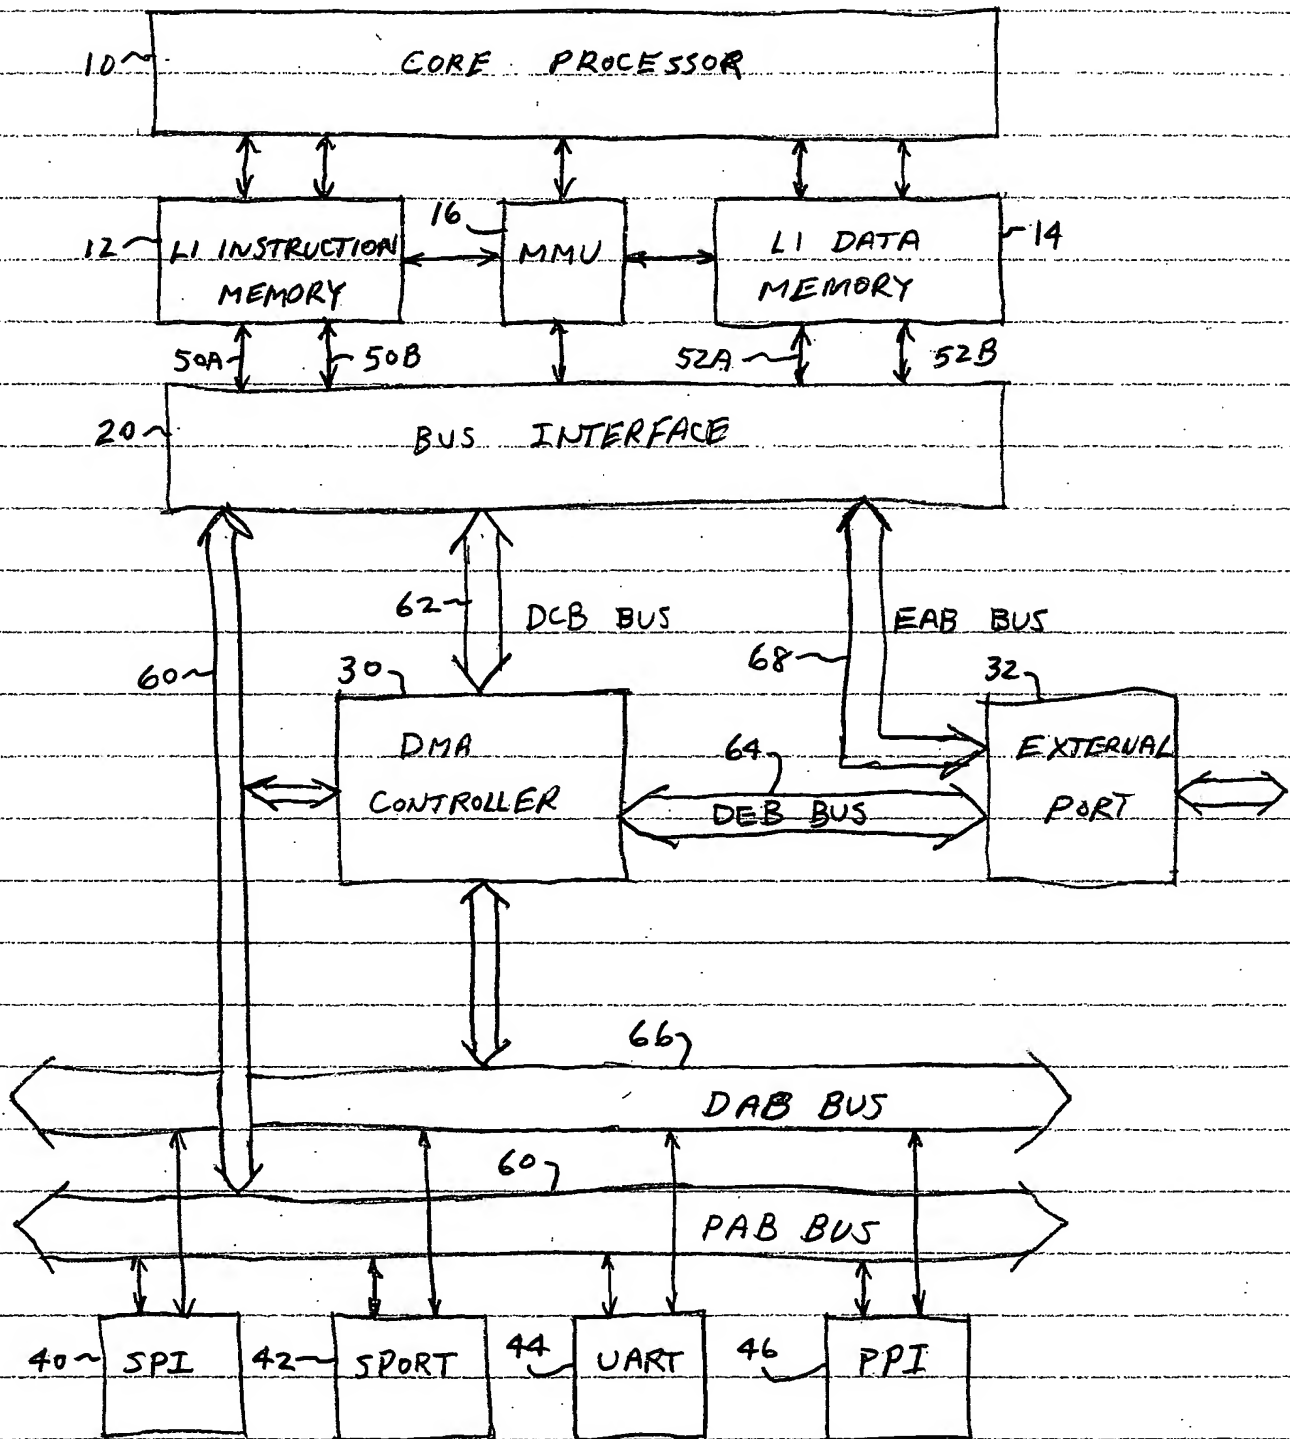 10 CORE PROCESSOR
16
12 L1 INSTRUCTION MEMORY
MMU
L1 DATA MEMORY 14
50A 50B 52A 52B
20 BUS INTERFACE
62 DCB BUS
EAB BUS
60 30 68 32
DMA CONTROLLER
64
DEB BUS
EXTERNAL PORT
66
DAB BUS
60
PAB BUS
40 SPI 42 SPORT 44 UART 46 PPI